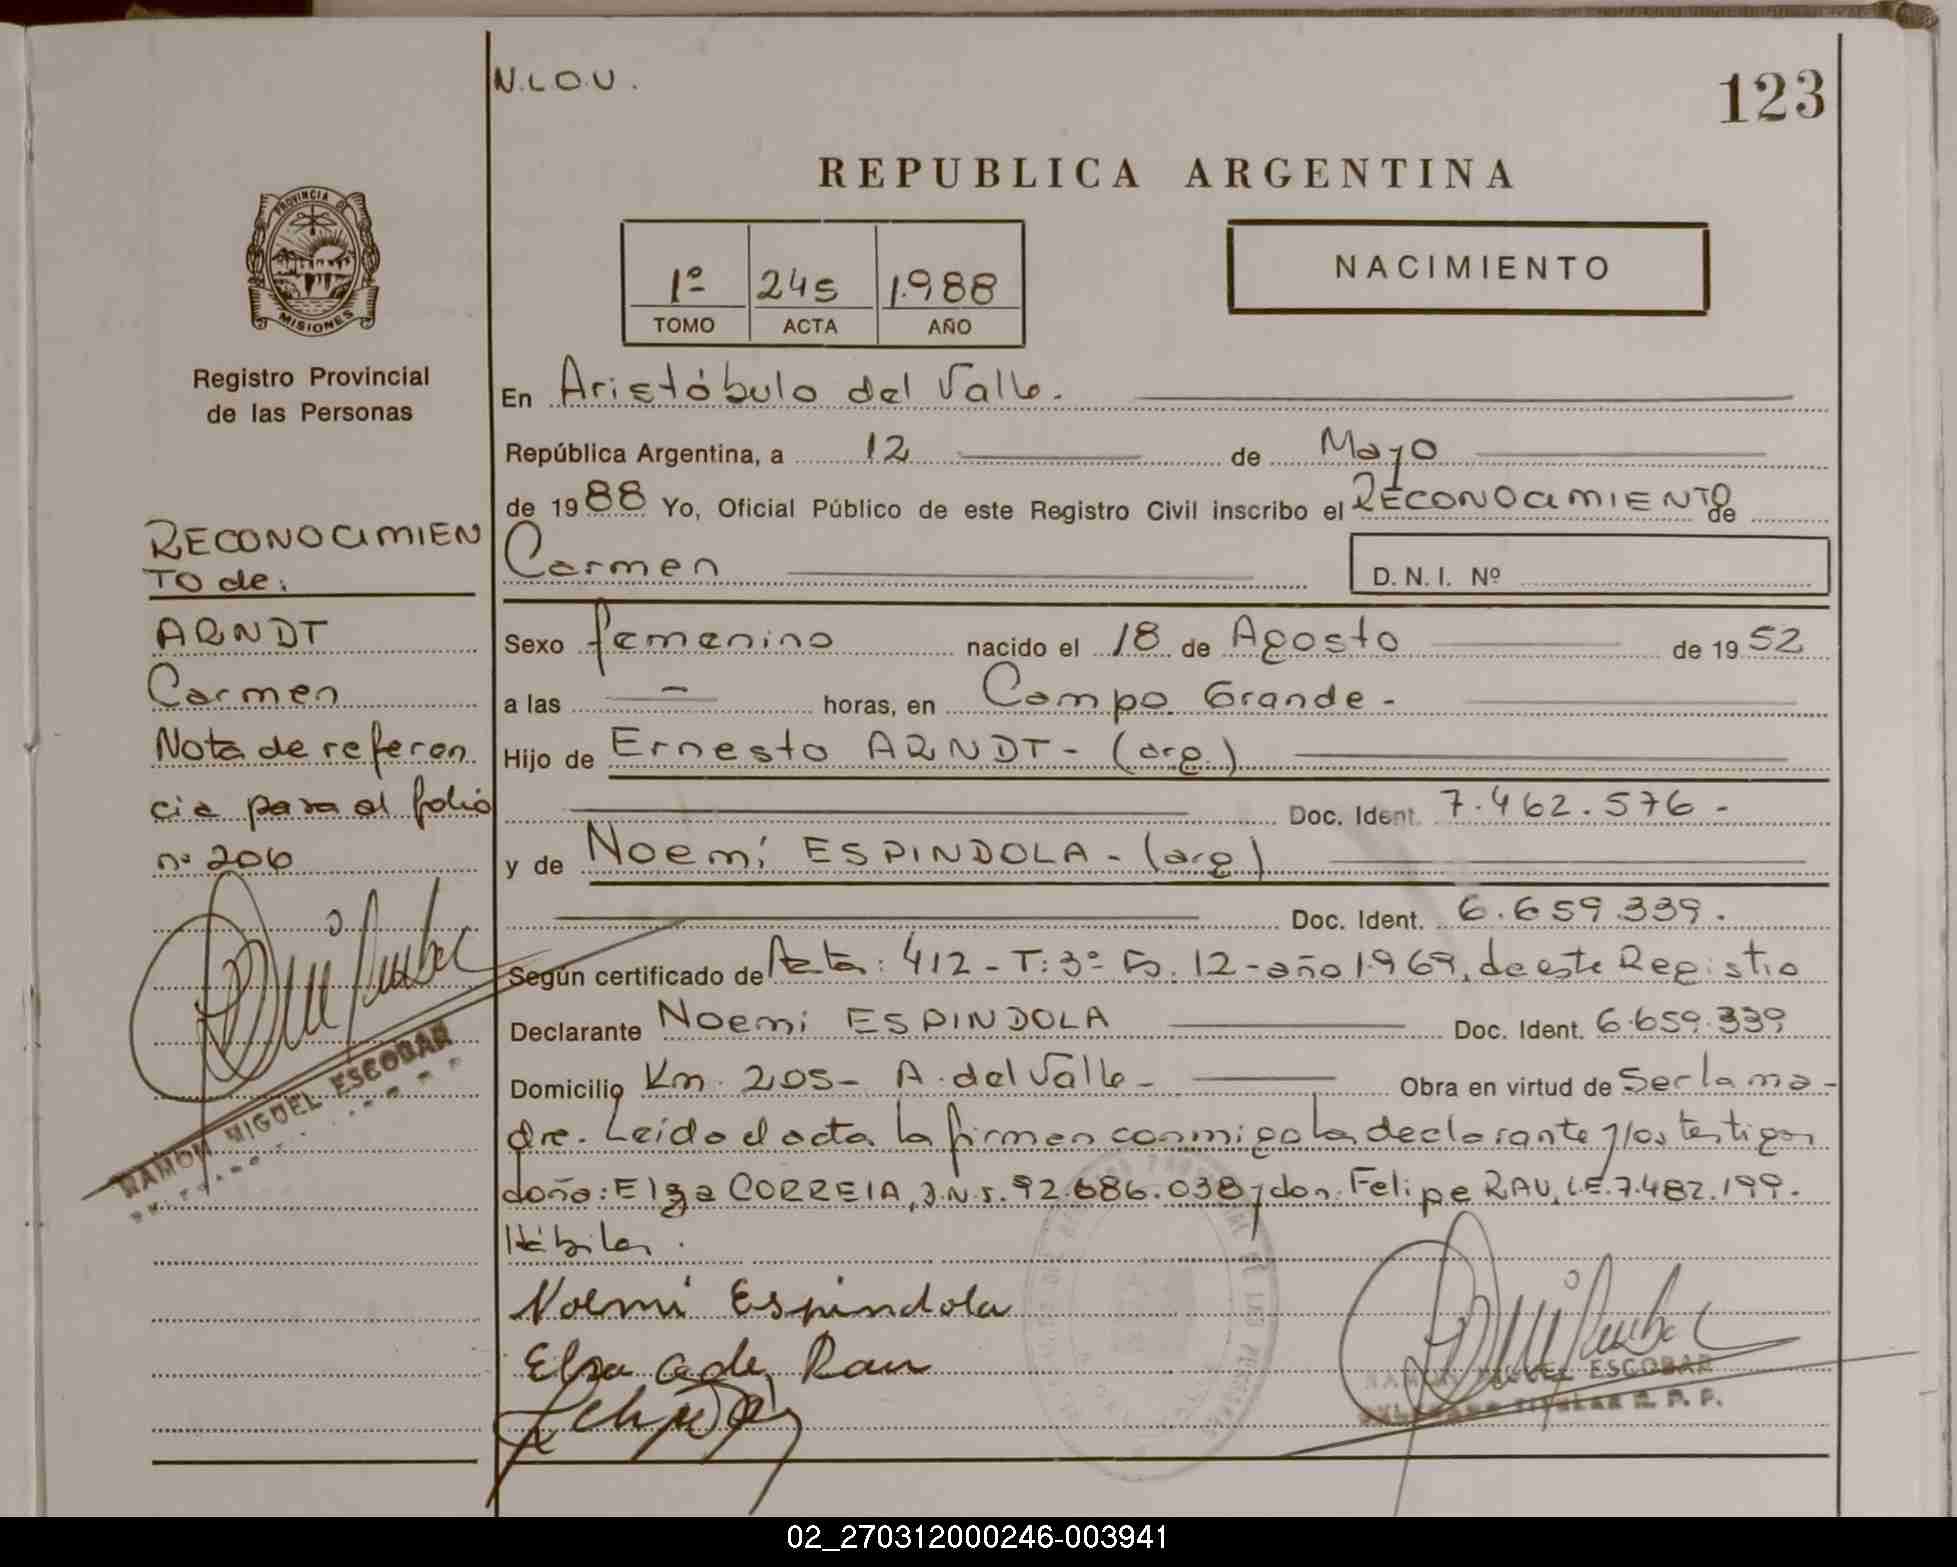 N.L.O.U.
123
REPUBLICA ARGENTINA
PROVINCIA DE
MISIONES
1º 245 1.988
TOMO ACTA AÑO
NACIMIENTO
Registro Provincial
de las Personas
RECONOCIMIEN
TO de:
ARNDT
Carmen
Nota de referen
cia para el folio
nº 206
RAMON MIGUEL ESCOBAR
En Aristóbulo del Valle.
República Argentina, a 12 de Mayo
de 1988 Yo, Oficial Público de este Registro Civil inscribo el RECONOCIMIENTO de
Carmen D.N.I. Nº
Sexo femenino nacido el 18 de Agosto de 1952
a las — horas, en Campo Grande -
Hijo de Ernesto ARNDT - (arg.)
Doc. Ident. 7.462.576 -
y de Noemí ESPINDOLA - (arg)
Doc. Ident. 6.659.339.
Según certificado de Acta: 412 - T: 3º Fo. 12 - año 1.969, de este Registro
Declarante Noemi ESPINDOLA Doc. Ident. 6.659.339
Domicilio Km. 205 - A. del Valle - Obra en virtud de Ser la ma-
dre. Leido el acta la firman conmigo la declarante y los testigos
doña: Elza CORREIA, D.N.I. 92.686.038 y don: Felipe RAU, L.E. 7.482.199.
Hábiles.
Noemi Espindola
Elsa C de Rau
RAMON MIGUEL ESCOBAR
TITULAR R. P. P.
02_270312000246-003941